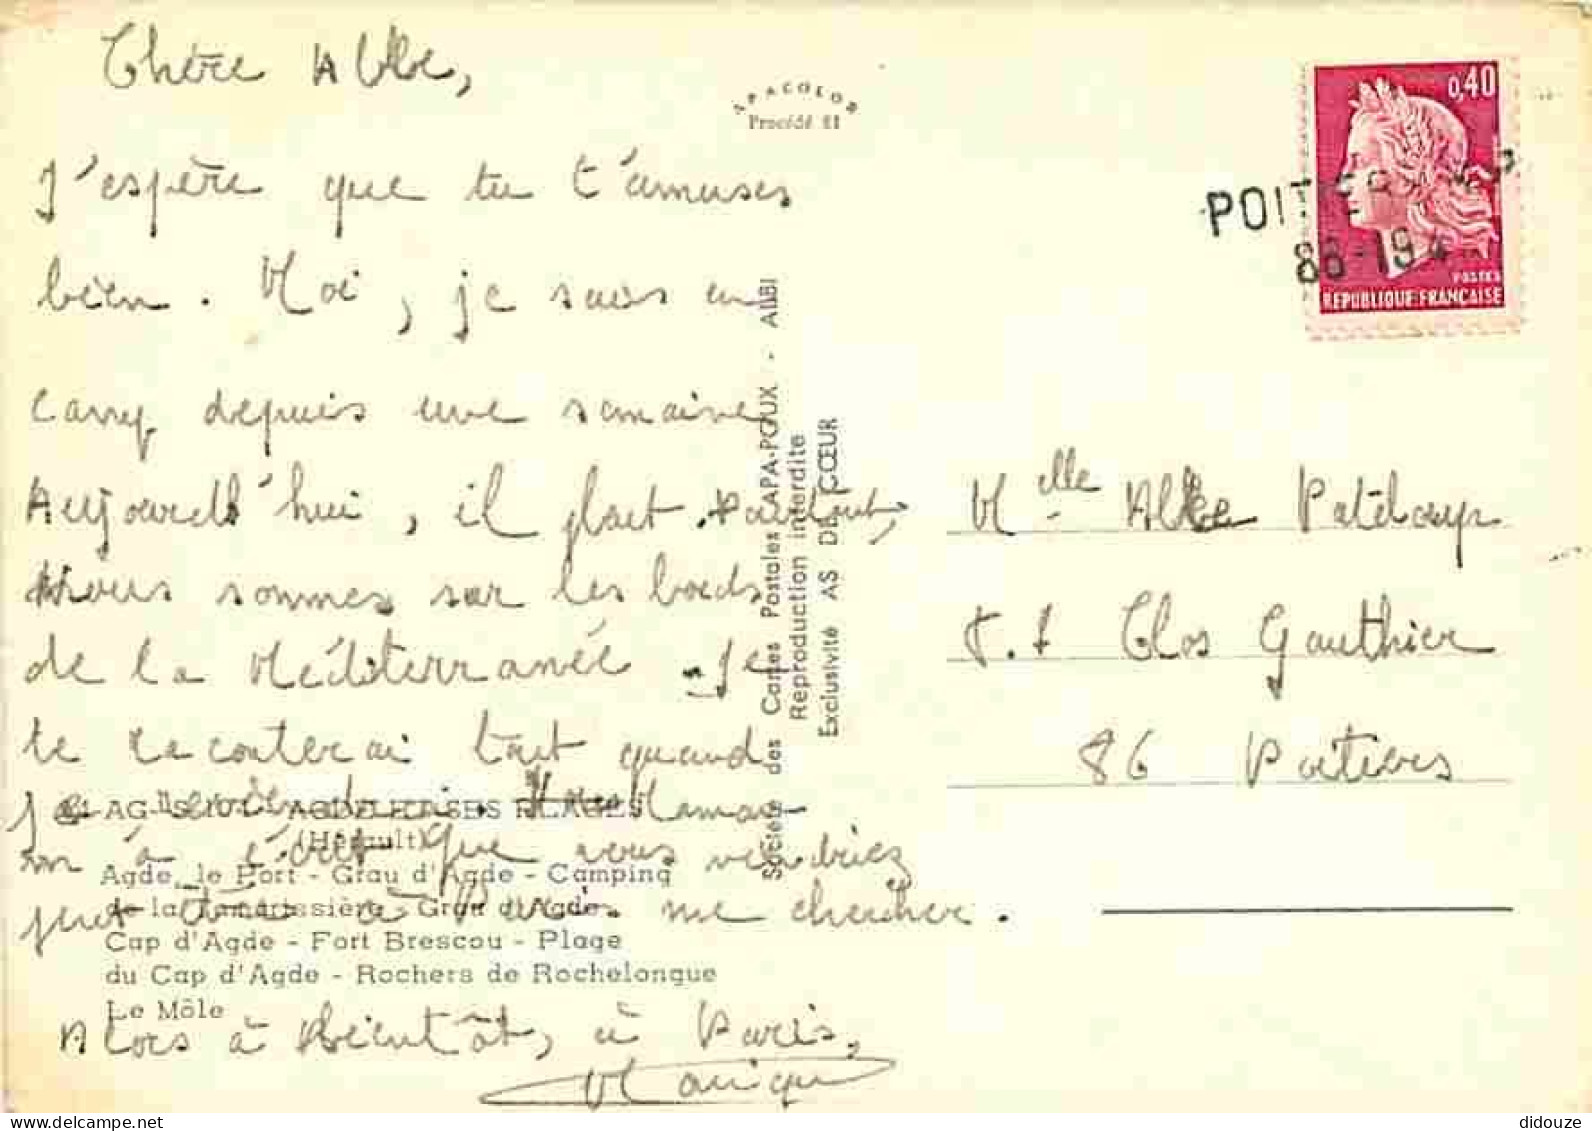 Chère
J'espère que tu t'amuses
bien. Moi, je suis en
camp depuis une semaine
Aujourd'hui, il pleut. Partout,
nous sommes sur les bords
de la Méditerranée. Je
te raconterai tout quand
je reviendrai. Maman
m'a écrit que vous viendriez
peut être à Paris me chercher.
Alors à bientôt, à Paris,
APACOLOR
Procédé 81
AGDE ET SES PLAGES
(Hérault)
Agde, le Port - Grau d'Agde - Camping
de la Tamarissière - Grau d'Agde
Cap d'Agde - Fort Brescou - Plage
du Cap d'Agde - Rochers de Rochelongue
Le Môle
Société des Cartes Postales APA-POUX - ALBI
Reproduction interdite
Exclusivité AS DE CŒUR
0,40
POSTES
REPUBLIQUE FRANÇAISE
POITIERS
86-194
Melle
Clos Gauthier
86 Poitiers
didouze